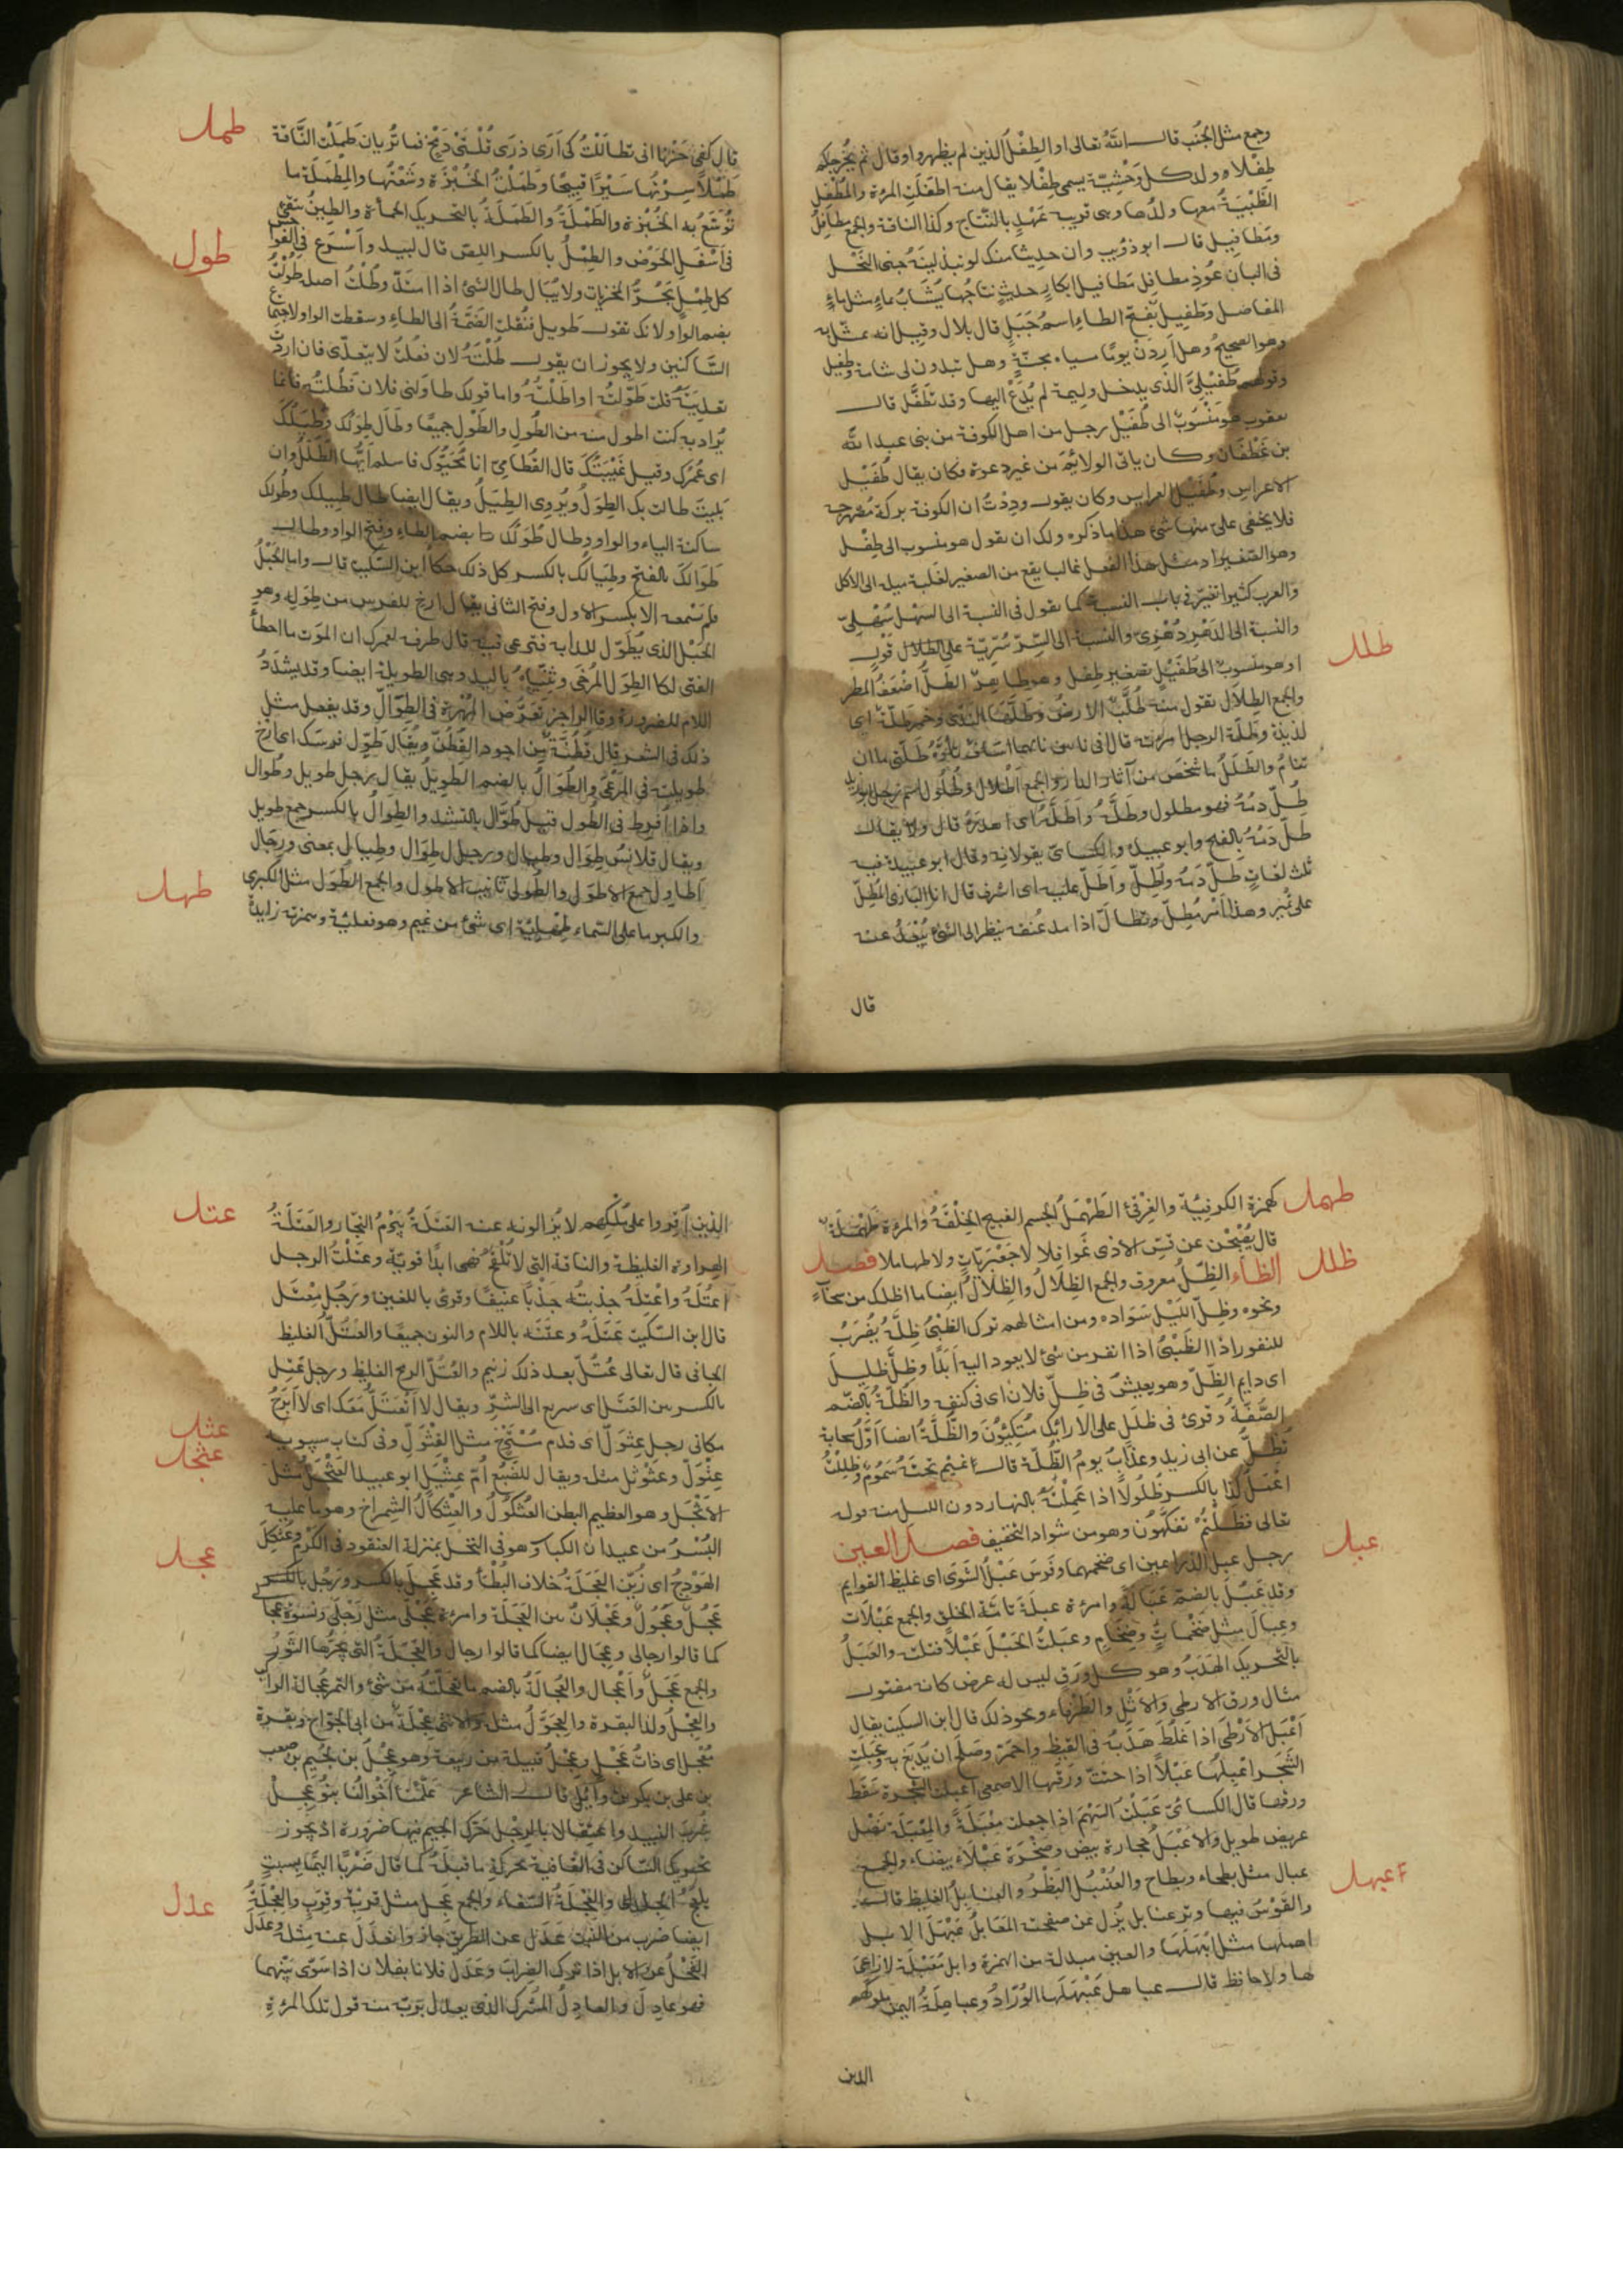 وجمع مثل الجنب قال الله تعالى او الطفل الذين لم يظهروا وقال ثم يخرجكم
طفلا وولد كل وحشية يسمى طفلا يقال منه اطفلت المرءة والمطفل
الظبية معها ولدها وهى قريبة عهد بالنتاج وكذا الناقة والجمع مطافل
ومطافيل قال ابو ذؤيب وان حديثا منك لو تبذلينه جنى النحل
فى البان عوذ مطافل مطافيل ابكار حديث نتاجها يشاب بماء مثل ماء
المفاصل وطفيل بفتح الطاء اسم جبل قال بلال وقيل انه تمثل به
وهو الصحيح وهل اردن يوما مياه مجنة وهل تبدون لى شامة وطفيل
وقولهم طفيلى الذى يدخل وليمة لم يدع اليها وقد تطفل قال
يعقوب هو منسوب الى طفيل رجل من اهل الكوفة من بنى عبد الله
بن غطفان وكان ياتى الولايم من غير دعوة فكان يقال طفيل
الاعراس وطفيل العرايس وكان يقول وددت ان الكوفة بركة مصهرجة
فلا يخفى على منها شئ هذا ما ذكره ولك ان تقول هو منسوب الى طفل
والعرب كثيرا تغير فى باب النسبة كما تقول فى النسبة الى السهل سهلى
والنسبة الى الدهر دهرى والنسبة الى السر سرية على الطلال قول
ظلل
او هو منسوب الى طفيل تصغير طفل الطل اضعف المطر
والجمع الطلال تقول منه طلت الارض وطلها الندى وخمر طلة اى
لذيذة وطلة الرجل امرءته
تنام والطلل ما شخص من آثار الدار والجمع اطلال وطلول
طل دمه فهو مطلول وطله واطله اى اهدره قال ولا يقال
طل دمه بالفتح وابو عبيدة والكسائى يقولانه وقال ابو عبيدة فيه
ثلث لغات طل دمه وطل واطل عليه اى اشرف قال انا البازى المطل
على نمير وهذا امر مطل وتطال اذا مد عنقه ينظر الى الشئ يبعد عنه
قال
طمل
قال كفى حزنا انى تطاللت كى ارى ذرى قلتى دمخ فما تريان طملت الناقة
طملا سرتها سيرا قبيحا وطملت الخبزة وسعتها والمطملة ما
توسع به الخبزة والطملة والطملة بالتحريك الحمأة والطين يبقى
فى اسفل الحوض والطمل بالكسر اللص قال لبيد واسرع فى الفواحش
طول
كل طمل يجر المخزيات ولا يبالى طال الشئ اذا امتد وطلت اصله طولت
بضم الواو لانك تقول طويل فنقلت الضمة الى الطاء وسقطت الواو لاجتماع
الساكنين ولا يجوز ان يقول طلته لان فعلت لا يتعدى فان اردت
تعديته قلت طولته او اطلته واما قولك طاولنى فلان فطلته فانما
يراد به كنت اطول منه من الطول والطول جميعا وطال طولك وطيلك
اى عمرك وقيل غيبتك قال القطامى انا محيوك فاسلم ايها الطلل وان
بليت طالت بك الطول ويروى الطيل ويقال ايضا طال طيلك وطولك
ساكنة الياء والواو وطال طولك بضم الطاء وفتح الواو وطال
طوالك بالفتح وطيالك بالكسر كل ذلك حكاه ابن السكيت قال واما الحبل
فلم نسمعه الا بكسر الاول وفتح الثانى يقال ارخ للفرس من طوله وهو
الحبل الذى يطول للدابة فترعى فيه قال طرفة لعمرك ان الموت ما اخطأ
الفتى لكا الطول المرخى وثنياه باليد وهى الطويلة ايضا وقد يشدد
اللام للضرورة وقال الراجز تعرض المهرة فى الطول وقد يفعل مثل
ذلك فى الشعر قال قطنة من اجود القطن ويقال طول فرسك اى ارخ
طويلته فى المرعى والطوال بالضم الطويل يقال رجل طويل وطوال
واذا افرط فى الطول قيل طوال بالتشديد والطوال بالكسر جمع طويل
ويقال قلانس طوال وطيال ورجل طوال وطيال بمعنى ورجال
اطاول جمع الاطول والطولى تانيث الاطول والجمع الطول مثل الكبرى
طهل
والكبر ما على السماء طهلئة اى شئ من غيم وهو فعلئة وهمزته زايدة
طهمل
كهمزة الكرفئة والغرقئ الطهمل الجسم القبيح الخلقة والمرءة طهملة
قال يصبحن عن قس الاذى غوافلا لا جعبريات ولا طهاملا فصل
ظلل
الظاء الظل معروف والجمع الظلال والظلال ايضا ما اظلك من سحاب
ونحوه وظل الليل سواده ومن امثالهم ترك الظبى ظله يضرب
للنفور اذا الظبى اذا نفر من شئ لا يعود اليه ابدا وظل ظليل
اى دايم الظل وهو يعيش فى ظل فلان اى فى كنفه والظلة بالضم
الصفة وقرئ فى ظلل على الارائك متكئون والظلة ايضا اول سحابة
تظل عن ابى زيد وعذاب يوم الظلة قال غيم تحته سموم وظللت
اعمل كذا بالكسر ظلولا اذا عملته بالنهار دون الليل منه قوله
تعالى فظلتم تفكهون وهو من شواذ التخفيف فصل العين
عبل
رجل عبل الذراعين اى ضخمهما وفرس عبل الشوى اى غليظ القوايم
وقد عبل بالضم عبالة وامرءة عبلة تامة الخلق والجمع عبلات
وعبال مثل ضخمات وضخام وعبلت الحبل عبلا فتلته والعبل
بالتحريك الهدب وهو كل ورق ليس له عرض كانه مفتول
مثال ورق الارطى والاثل والطرفاء ونحو ذلك قال ابن السكيت يقال
اعبل الارطى اذا غلظ هدبه فى القيظ واحمر وصلح ان يدبغ به وعبلت
الشجر اعبلها عبلا اذا حتت ورقها الاصمعى اعبلت الشجرة سقط
ورقها قال الكسائى عبلت السهم اذا جعلت معبلة والمعبلة نصل
عريض طويل والاعبل حجارة بيض وصخرة عبلاء بيضاء والجمع
عبال مثل بطحاء وبطاح والعنبل البظر والعنابل الغليظ قال
عبهل
والقوس فيها وتر عنابل يزل عن صفحته المعابل عبهل الابل
اهملها مثل ابهلها والعين مبدلة من الهمزة وابل معبهلة لا راعى
لها ولا حافظ قال عباهل عبهلها الوراد وعباهلة اليمن ملوكهم
الذين
عتل
الذين اقروا على ملكهم لا يزالون عنه العتلة بيرم النجار والعتلة
الهراوة الغليظة والناقة التى لا تلقح فهى ابدا قوية وعتلت الرجل
اعتله واعتله جذبته جذبا عنيفا وقرئ باللغتين ورجل معتل
قال ابن السكيت عتله وعتنه باللام والنون جميعا والعتل الغليظ
الجافى قال تعالى عتل بعد ذلك زنيم والعتل الرمح الغليظ ورجل عتل
بالكسر بين العتل اى سريع الى الشر ويقال لا انعتل معك اى لا ابرح
عثل
مكانى رجل عثول اى فدم مسترخ مثل القثول وفى كتاب سيبويه
عثجل
عثول وعثوثل مثله ويقال للضبع ام عثيل ابو عبيد العثجل مثل
الاثجل وهو العظيم البطن العثكول والعثكال الشمراخ وهو ما عليه
البسر من عيدان الكباسة وهو فى النخل بمنزلة العنقود فى الكرم وعثكل
عجل
الهودج اى زين العجلة خلاف البطأ وقد عجل بالكسر ورجل بالكسر
عجل وعجول وعجلان بين العجلة وامرءة عجلى مثل رجلى ونسوة عجالى
كما قالوا رجالى وعجال ايضا كما قالوا رجال والعجلة التى يجرها الثور
والجمع عجل واعجال والعجالة بالضم ما تعجلته من شئ والتمر عجالة الراكب
والعجل ولد البقرة والعجول مثله والانثى عجلة عن ابى الجراح وبقرة
معجل اى ذات عجل وعجل قبيلة من ربيعة وهو عجل بن لجيم بن صعب
بن على بن بكر بن وائل قال الشاعر علمنا اخوالنا بنو عجل
شرب النبيذ واعتقالا بالرجل حرك الجيم فيها ضرورة اذ يجوز
تحريك الساكن فى القافية بحركة ما قبله كما قال ضربا اليما بسبت
يلعج الجلدا والعجلة السقاء والجمع عجل مثل قربة وقرب والعجلة
عدل
ايضا ضرب من النبت عدل عن الطريق جار وانعدل عنه مثله وعدل
الفحل عن الابل اذا ترك الضراب وعدل فلانا بفلان اذا سوى بينهما
فهو عادل والعادل المشرك الذى يعدل بربه منه قول تلك المرءة